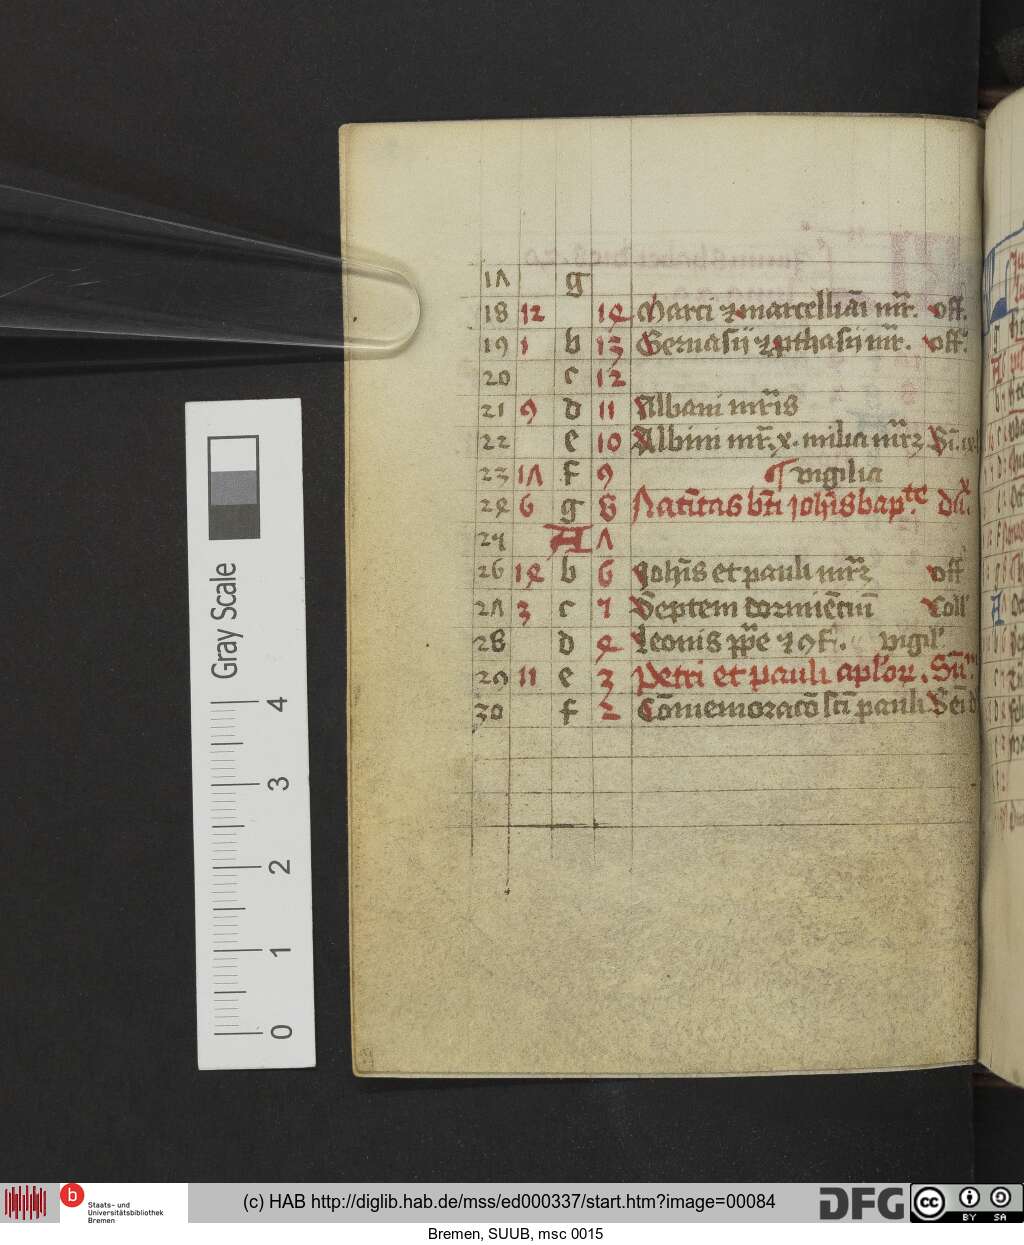 17 g
18 12 14 Marci ⁊ marcelliāi mr̄. off.
19 1 b 13 Geruasij ⁊ ꝓthasij mr̄. off.
20 c 12
21 9 d 11 Albani mr̄is
22 e 10 Albini mr̄. x. milia mr̄ꝝ
23 17 f 9 vigilia
24 6 g 8 Natīitas bt̄i ioh̄is bapͭͤ. du.
25 A 7
26 14 b 6 Ioh̄is et pauli mr̄ꝝ off
27 3 c Septem dormiēciū Coll'
28 d 4 Leonis pp̄e ⁊ ꝯf. vigil'
29 11 e 3 Petri et pauli apl'oꝝ. Sū
30 f 2 Cōmemoracō sc̄i pauli
Gray Scale
4
3
2
1
0
b Staats- und
Universitätsbibliothek
Bremen
(c) HAB http://diglib.hab.de/mss/ed000337/start.htm?image=00084
DFG
cc BY SA
Bremen, SUUB, msc 0015